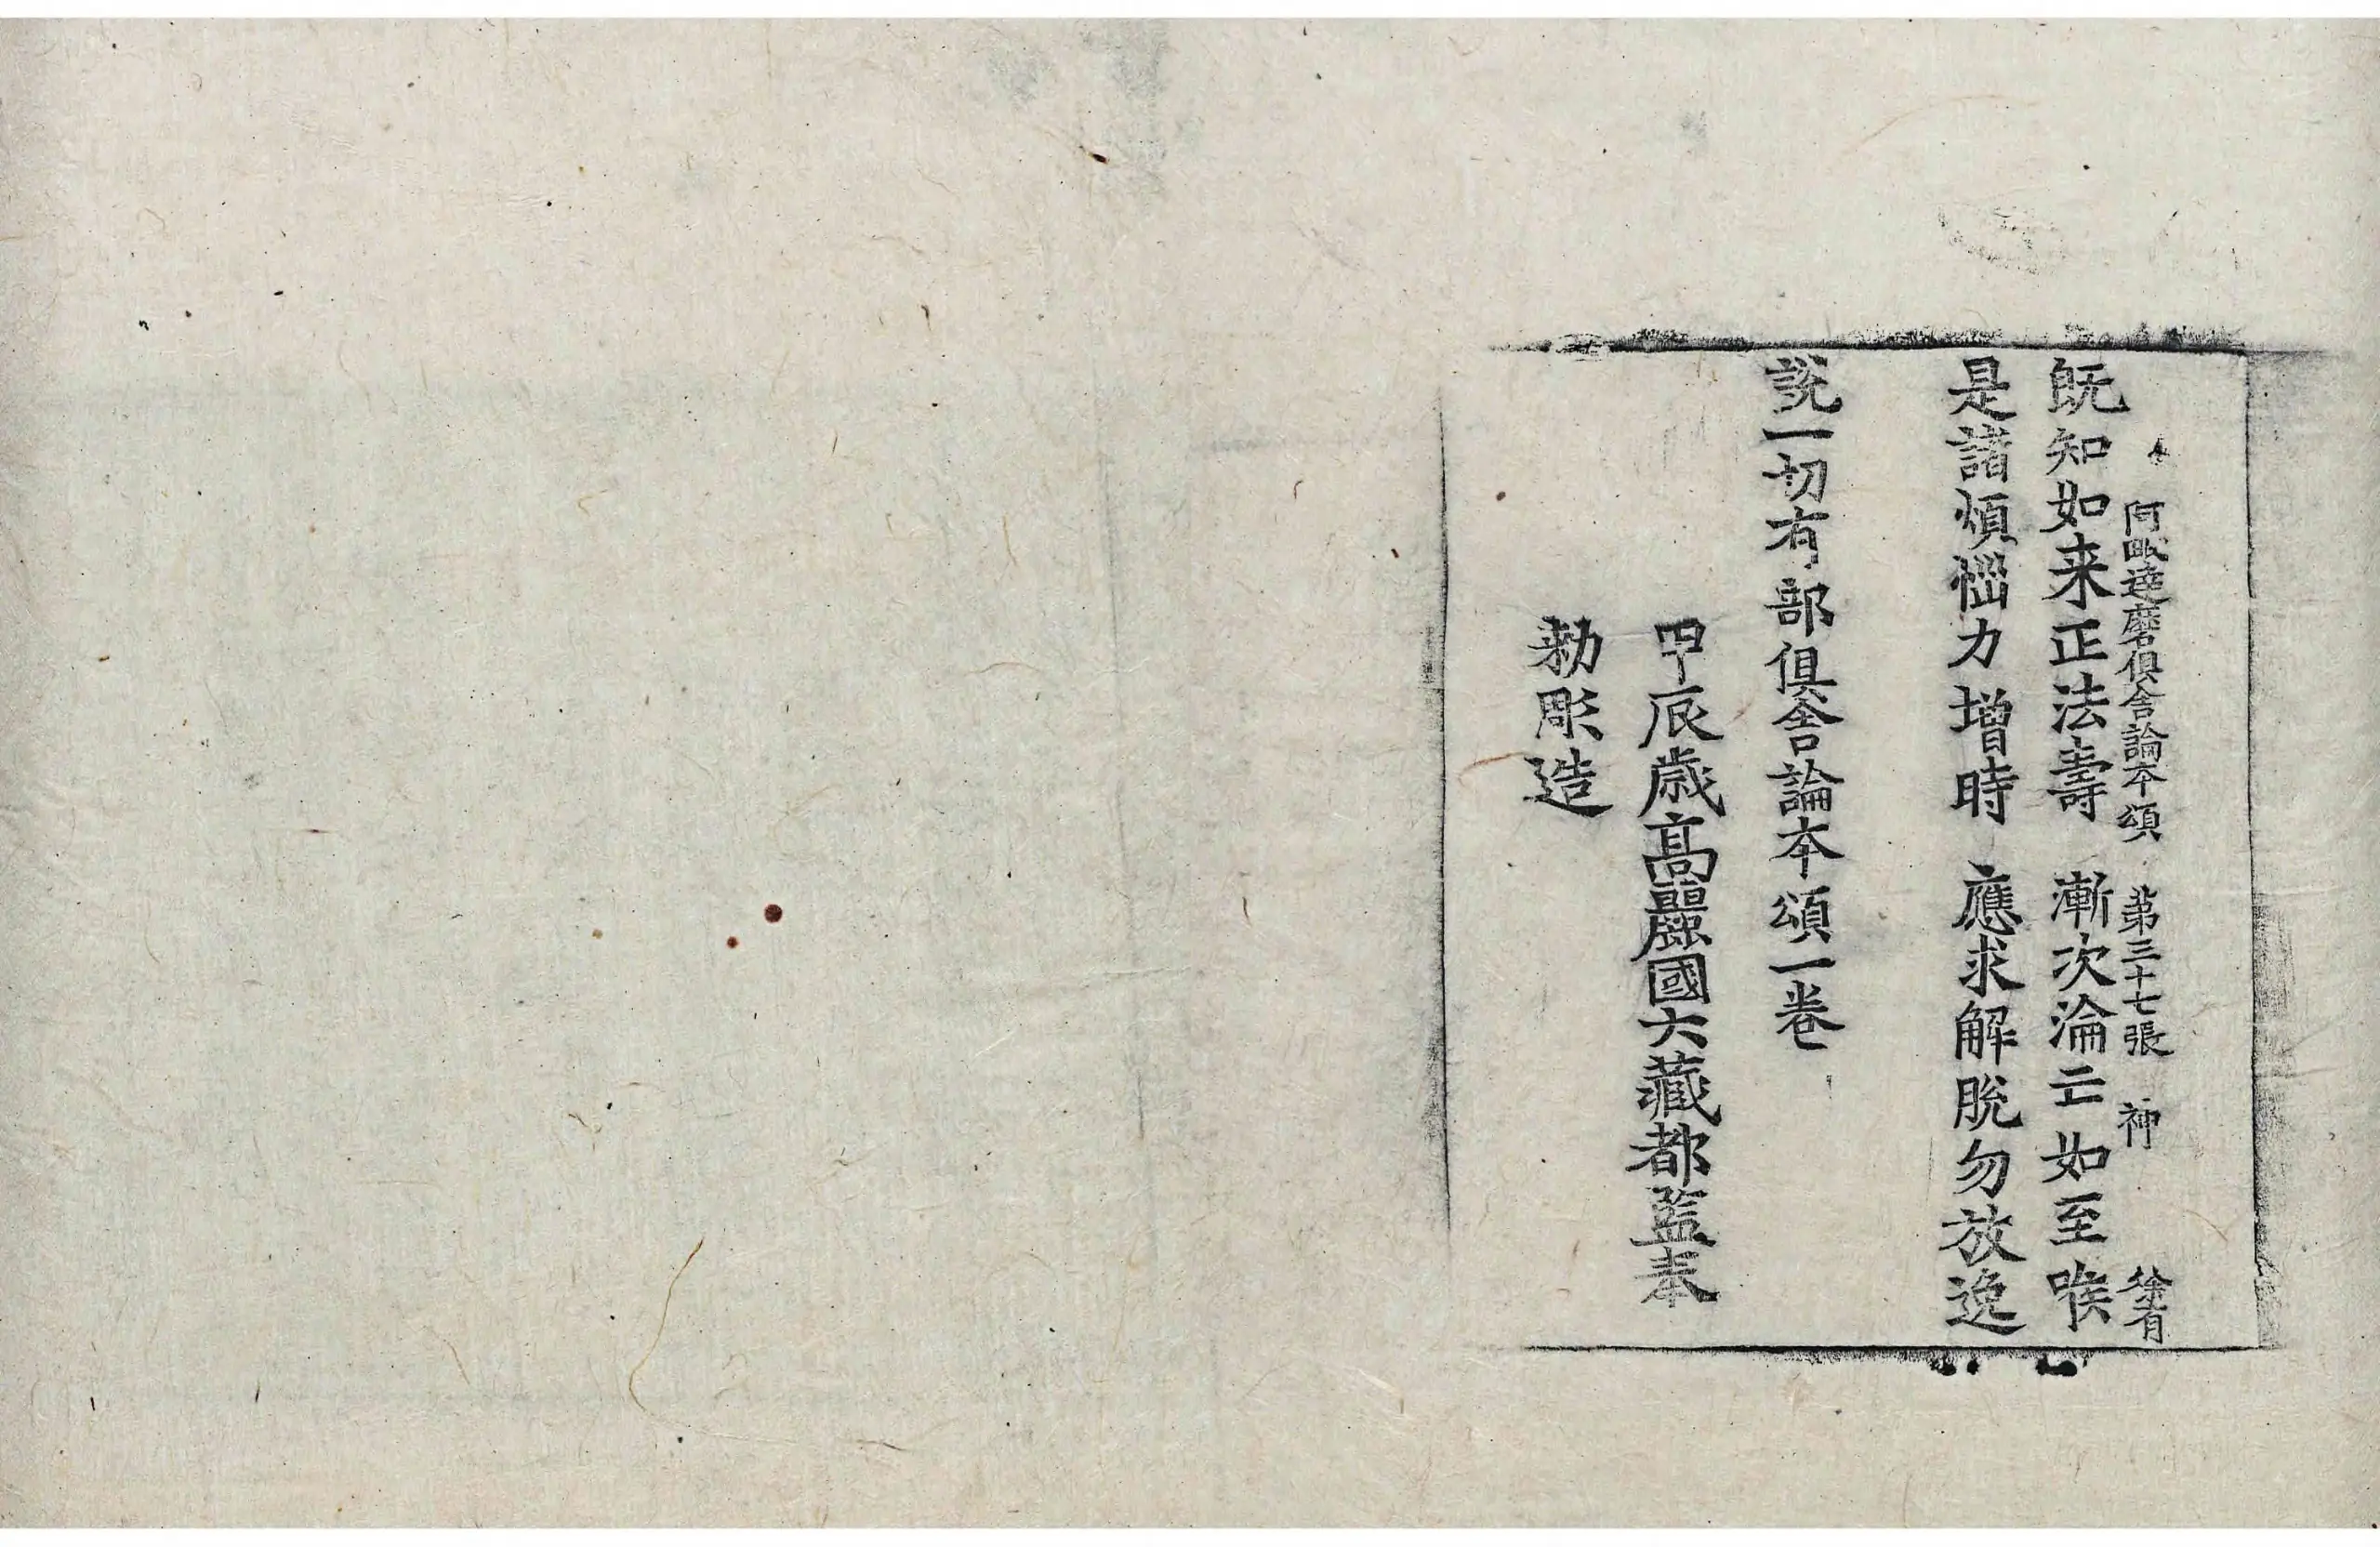 阿毗達磨俱舍論本頌 第三十七張 神 徐有
既知如来正法壽 漸次淪亡如至喉
是諸煩惱力增時 應求解脫勿放逸
說一切有部俱舍論本頌一卷
甲辰歲高麗國大藏都監奉
勅彫造